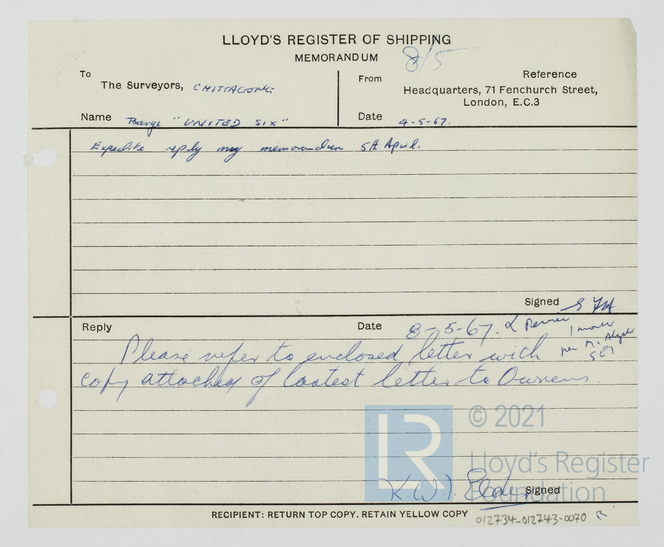 LLOYD'S REGISTER OF SHIPPING
MEMORANDUM
8/5
To
The Surveyors, CHITTAGONG
From
Reference
Headquarters, 71 Fenchurch Street,
London, E.C.3
Name Barge "UNITED SIX"
Date 4-5-67.
Expedite reply my memorandum 5th April.
Signed
Reply
Date 8-5-67.
1 month
Please refer to enclosed letter with
copy attached of latest letter to Owners.
© 2021
LR
Lloyd's Register
Foundation
K.W.
Signed
RECIPIENT: RETURN TOP COPY. RETAIN YELLOW COPY
012734-012743-0070 R